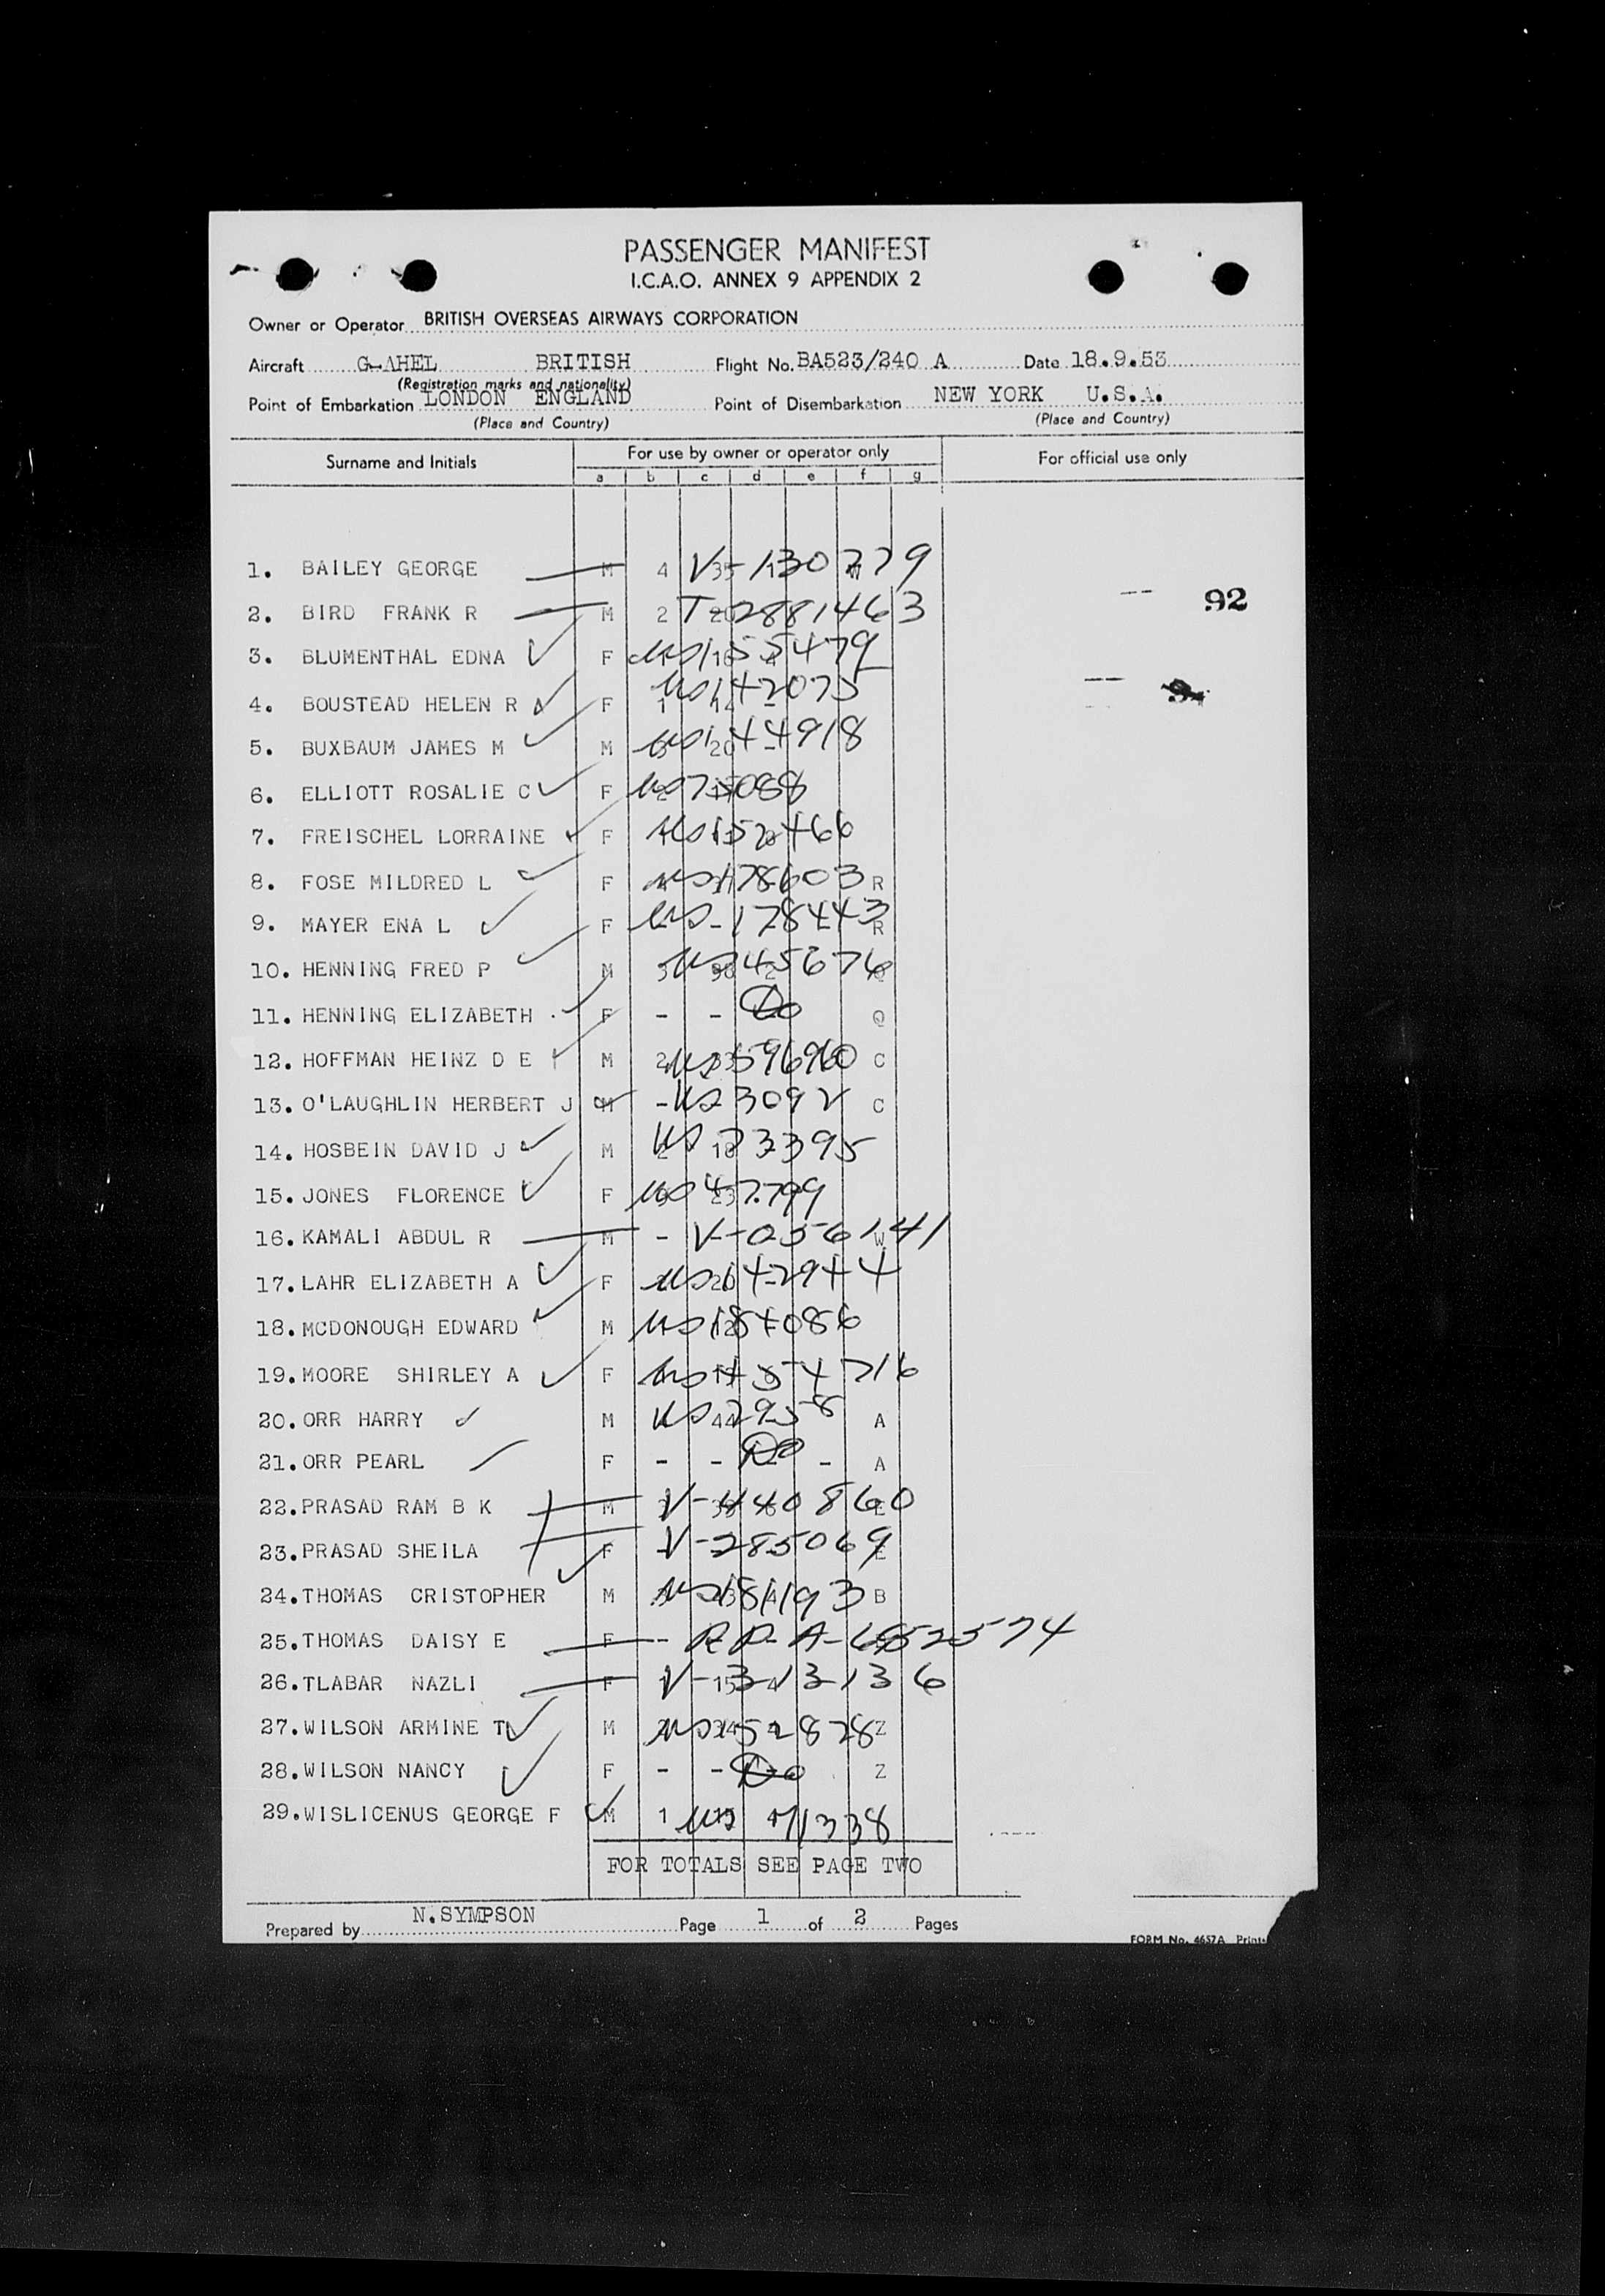 PASSENGER MANIFEST
I.C.A.O. ANNEX 9 APPENDIX 2
Owner or Operator BRITISH OVERSEAS AIRWAYS CORPORATION
Aircraft G-AHEL BRITISH Flight No. BA523/240 A Date 18.9.53
(Registration marks and nationality)
Point of Embarkation LONDON ENGLAND Point of Disembarkation NEW YORK U.S.A.
(Place and Country) (Place and Country)
Surname and Initials For use by owner or operator only For official use only
a b c d e f g
1. BAILEY GEORGE M 4 V-130779
2. BIRD FRANK R M 2 T-2881463 92
3. BLUMENTHAL EDNA F US155479
4. BOUSTEAD HELEN R A F 1 US142075
5. BUXBAUM JAMES M M US144918
6. ELLIOTT ROSALIE C F US75088
7. FREISCHEL LORRAINE F US152466
8. FOSE MILDRED L F US178603 R
9. MAYER ENA L F US-178443 R
10. HENNING FRED P M US45676
11. HENNING ELIZABETH F - - Do Q
12. HOFFMAN HEINZ D E M US596960 C
13. O'LAUGHLIN HERBERT J M - US3092 C
14. HOSBEIN DAVID J M US73395
15. JONES FLORENCE F US47799
16. KAMALI ABDUL R M - V-056141 W
17. LAHR ELIZABETH A F US142944
18. MCDONOUGH EDWARD M US184086
19. MOORE SHIRLEY A F US154716
20. ORR HARRY M US2958 A
21. ORR PEARL F - - Do - A
22. PRASAD RAM B K M V-440860 E
23. PRASAD SHEILA F V-285069 E
24. THOMAS CRISTOPHER M US181193 B
25. THOMAS DAISY E F - RP-A-
26. TLABAR NAZLI F V-313136
27. WILSON ARMINE T M US152878 Z
28. WILSON NANCY F - - Do Z
29. WISLICENUS GEORGE F M 1 US 71338
FOR TOTALS SEE PAGE TWO
Prepared by N.SYMPSON Page 1 of 2 Pages
FORM No. 4657A